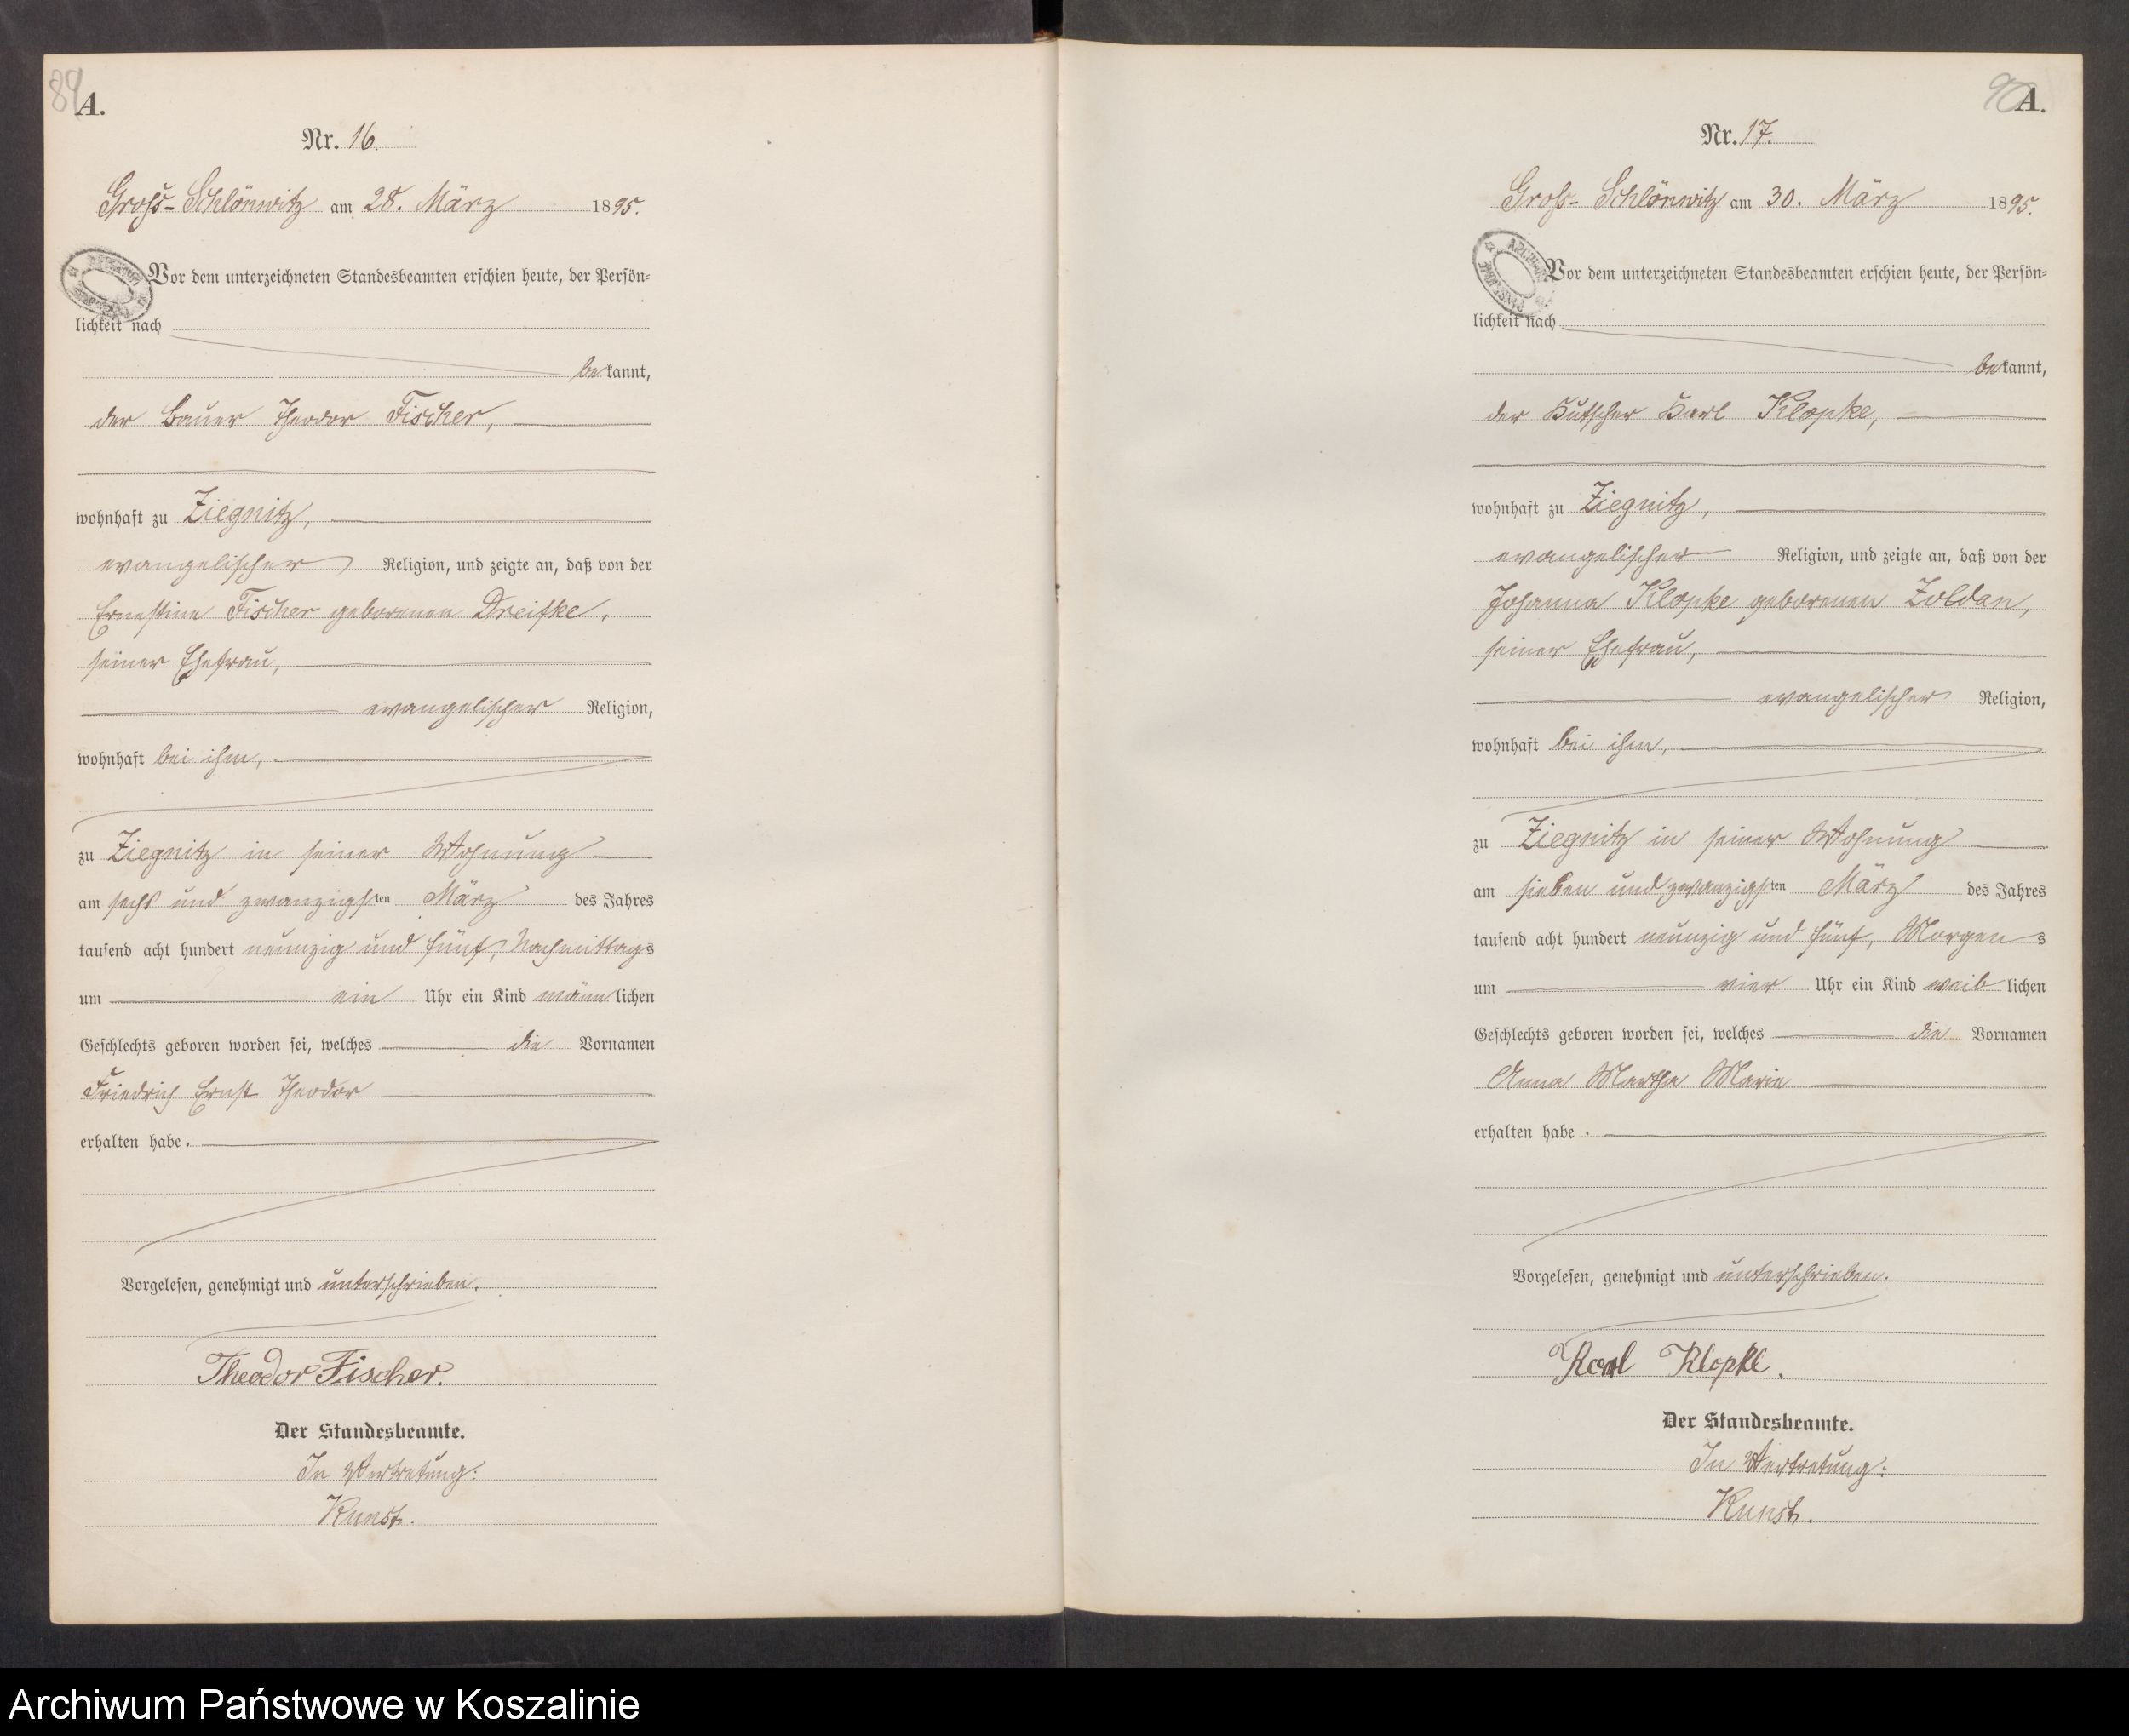 89
A.
Nr. 16.
Groß-Schlönwitz am 28. März 1895.
Vor dem unterzeichneten Standesbeamten erschien heute, der Persön=
lichkeit nach
bekannt,
der Bauer Theodor Fischer,
wohnhaft zu Ziegnitz,
evangelischer Religion, und zeigte an, daß von der
Ernestine Fischer geborenen Dreifke,
seiner Ehefrau,
evangelischer Religion,
wohnhaft bei ihm,
zu Ziegnitz in seiner Wohnung
am sechs und zwanzigsten März des Jahres
tausend acht hundert neunzig und fünf, Nachmittags
um ein Uhr ein Kind männlichen
Geschlechts geboren worden sei, welches die Vornamen
Friedrich Ernst Theodor
erhalten habe.
Vorgelesen, genehmigt und unterschrieben.
Theodor Fischer.
Der Standesbeamte.
In Vertretung:
Kunst.
90
A.
Nr. 17.
Groß-Schlönwitz am 30. März 1895.
Vor dem unterzeichneten Standesbeamten erschien heute, der Persön=
lichkeit nach
bekannt,
der Kutscher Karl Klopke,
wohnhaft zu Ziegnitz,
evangelischer Religion, und zeigte an, daß von der
Johanna Klopke geborenen Zoldan,
seiner Ehefrau,
evangelischer Religion,
wohnhaft bei ihm,
zu Ziegnitz in seiner Wohnung
am sieben und zwanzigsten März des Jahres
tausend acht hundert neunzig und fünf, Morgens
um vier Uhr ein Kind weiblichen
Geschlechts geboren worden sei, welches die Vornamen
Anna Martha Marie
erhalten habe.
Vorgelesen, genehmigt und unterschrieben.
Karl Klopke.
Der Standesbeamte.
In Vertretung:
Kunst.
Archiwum Państwowe w Koszalinie